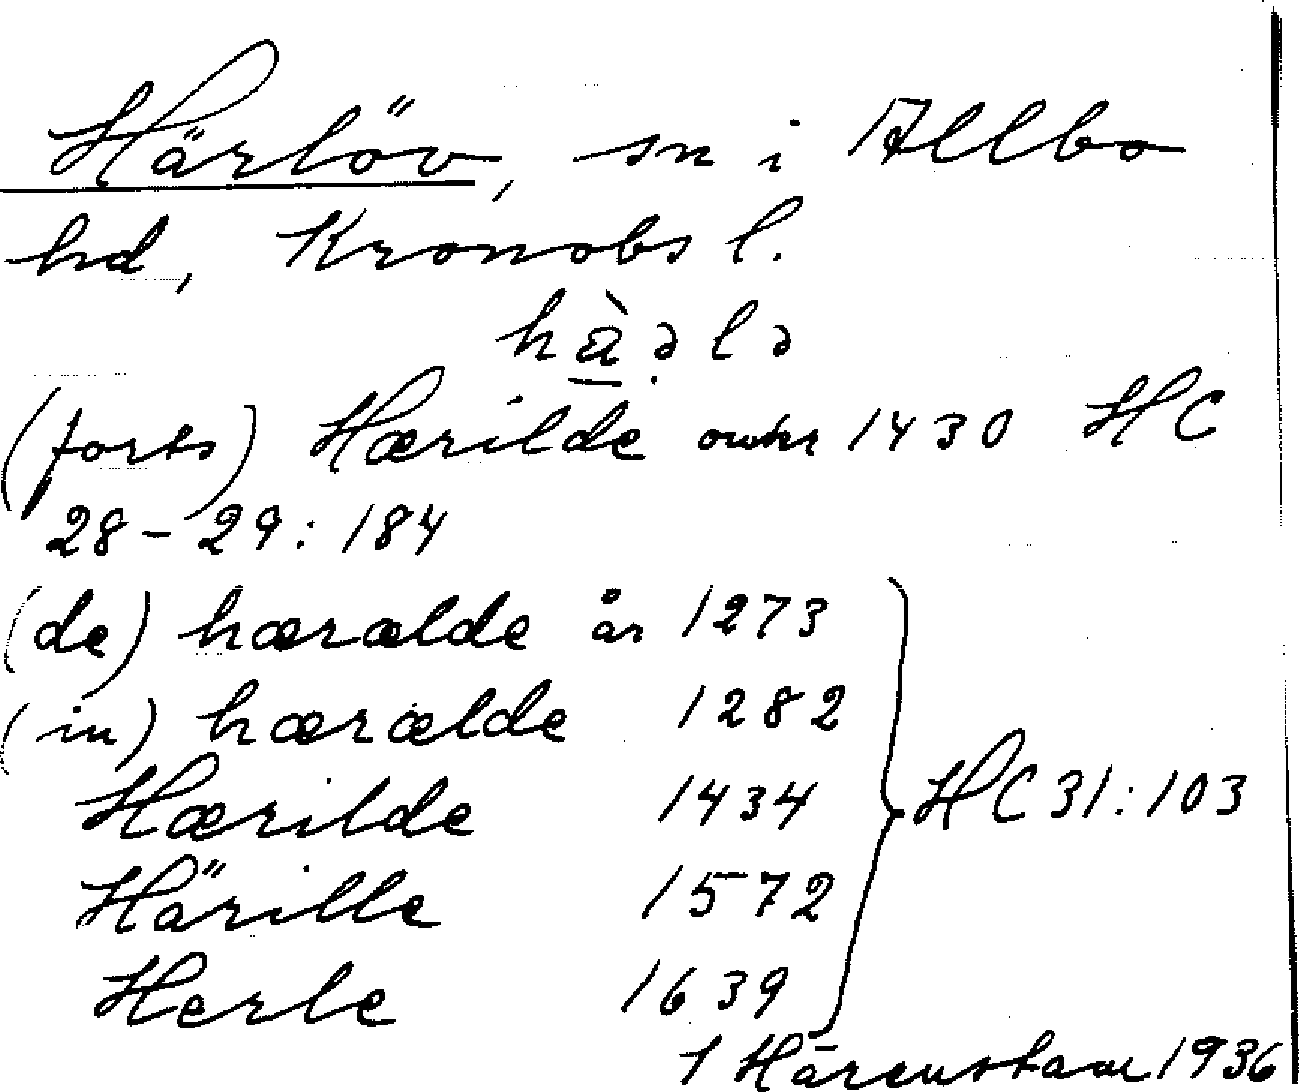 Härlöv, sn i Allbo
hd, Kronobs l.
hä̀ələ
(forts) Hærilde omkr 1430 HC
28-29:184
(de) hæræelde år 1273
(in) hæræelde 1282
Hærilde 1434 HC 31:103
Härille 1572
Herle 1639
1936